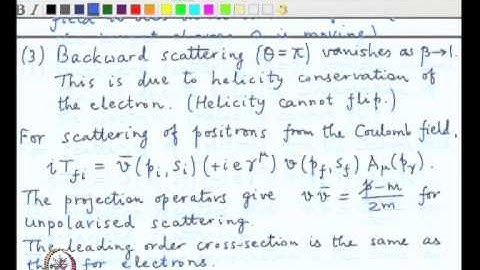 (3) Backward scattering (θ=π) vanishes as β→1.
This is due to helicity conservation of
the electron. (Helicity cannot flip.)
For scattering of positrons from the Coulomb field,
i T_fi = v̄(p_i, s_i) (+ieγ^μ) v(p_f, s_f) A_μ(p_γ).
The projection operators give v v̄ = (p̸-m)/2m for
unpolarised scattering.
The leading order cross-section is the same as
for electrons.